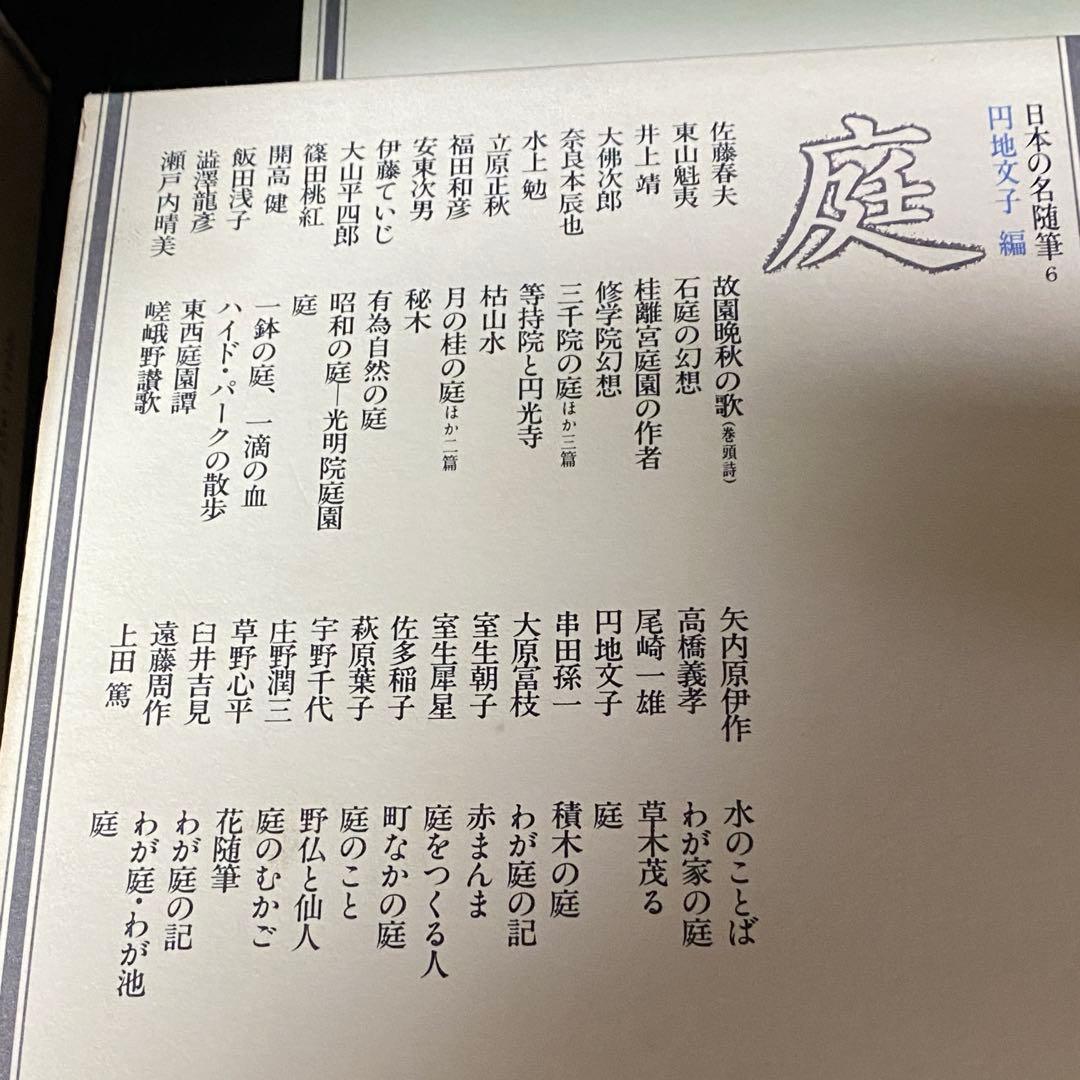 日本の名随筆6
円地文子 編
庭
佐藤春夫 故園晩秋の歌(巻頭詩)
東山魁夷 石庭の幻想
井上 靖 桂離宮庭園の作者
大佛次郎 修学院幻想
奈良本辰也 三千院の庭ほか三篇
水上 勉 等持院と円光寺
立原正秋 枯山水
福田和彦 月の桂の庭ほか二篇
安東次男 秘木
伊藤ていじ 有為自然の庭
大山平四郎 昭和の庭―光明院庭園
篠田桃紅 庭
開高 健 一鉢の庭、一滴の血
飯田浅子 ハイド・パークの散歩
澁澤龍彥 東西庭園譚
瀬戸内晴美 嵯峨野讃歌
矢内原伊作 水のことば
高橋義孝 わが家の庭
尾崎一雄 草木茂る
円地文子 庭
串田孫一 積木の庭
大原富枝 わが庭の記
室生朝子 赤まんま
室生犀星 庭をつくる人
佐多稲子 町なかの庭
萩原葉子 庭のこと
宇野千代 野仏と仙人
庄野潤三 庭のむかご
草野心平 花随筆
臼井吉見 わが庭の記
遠藤周作 わが庭・わが池
上田 篤 庭